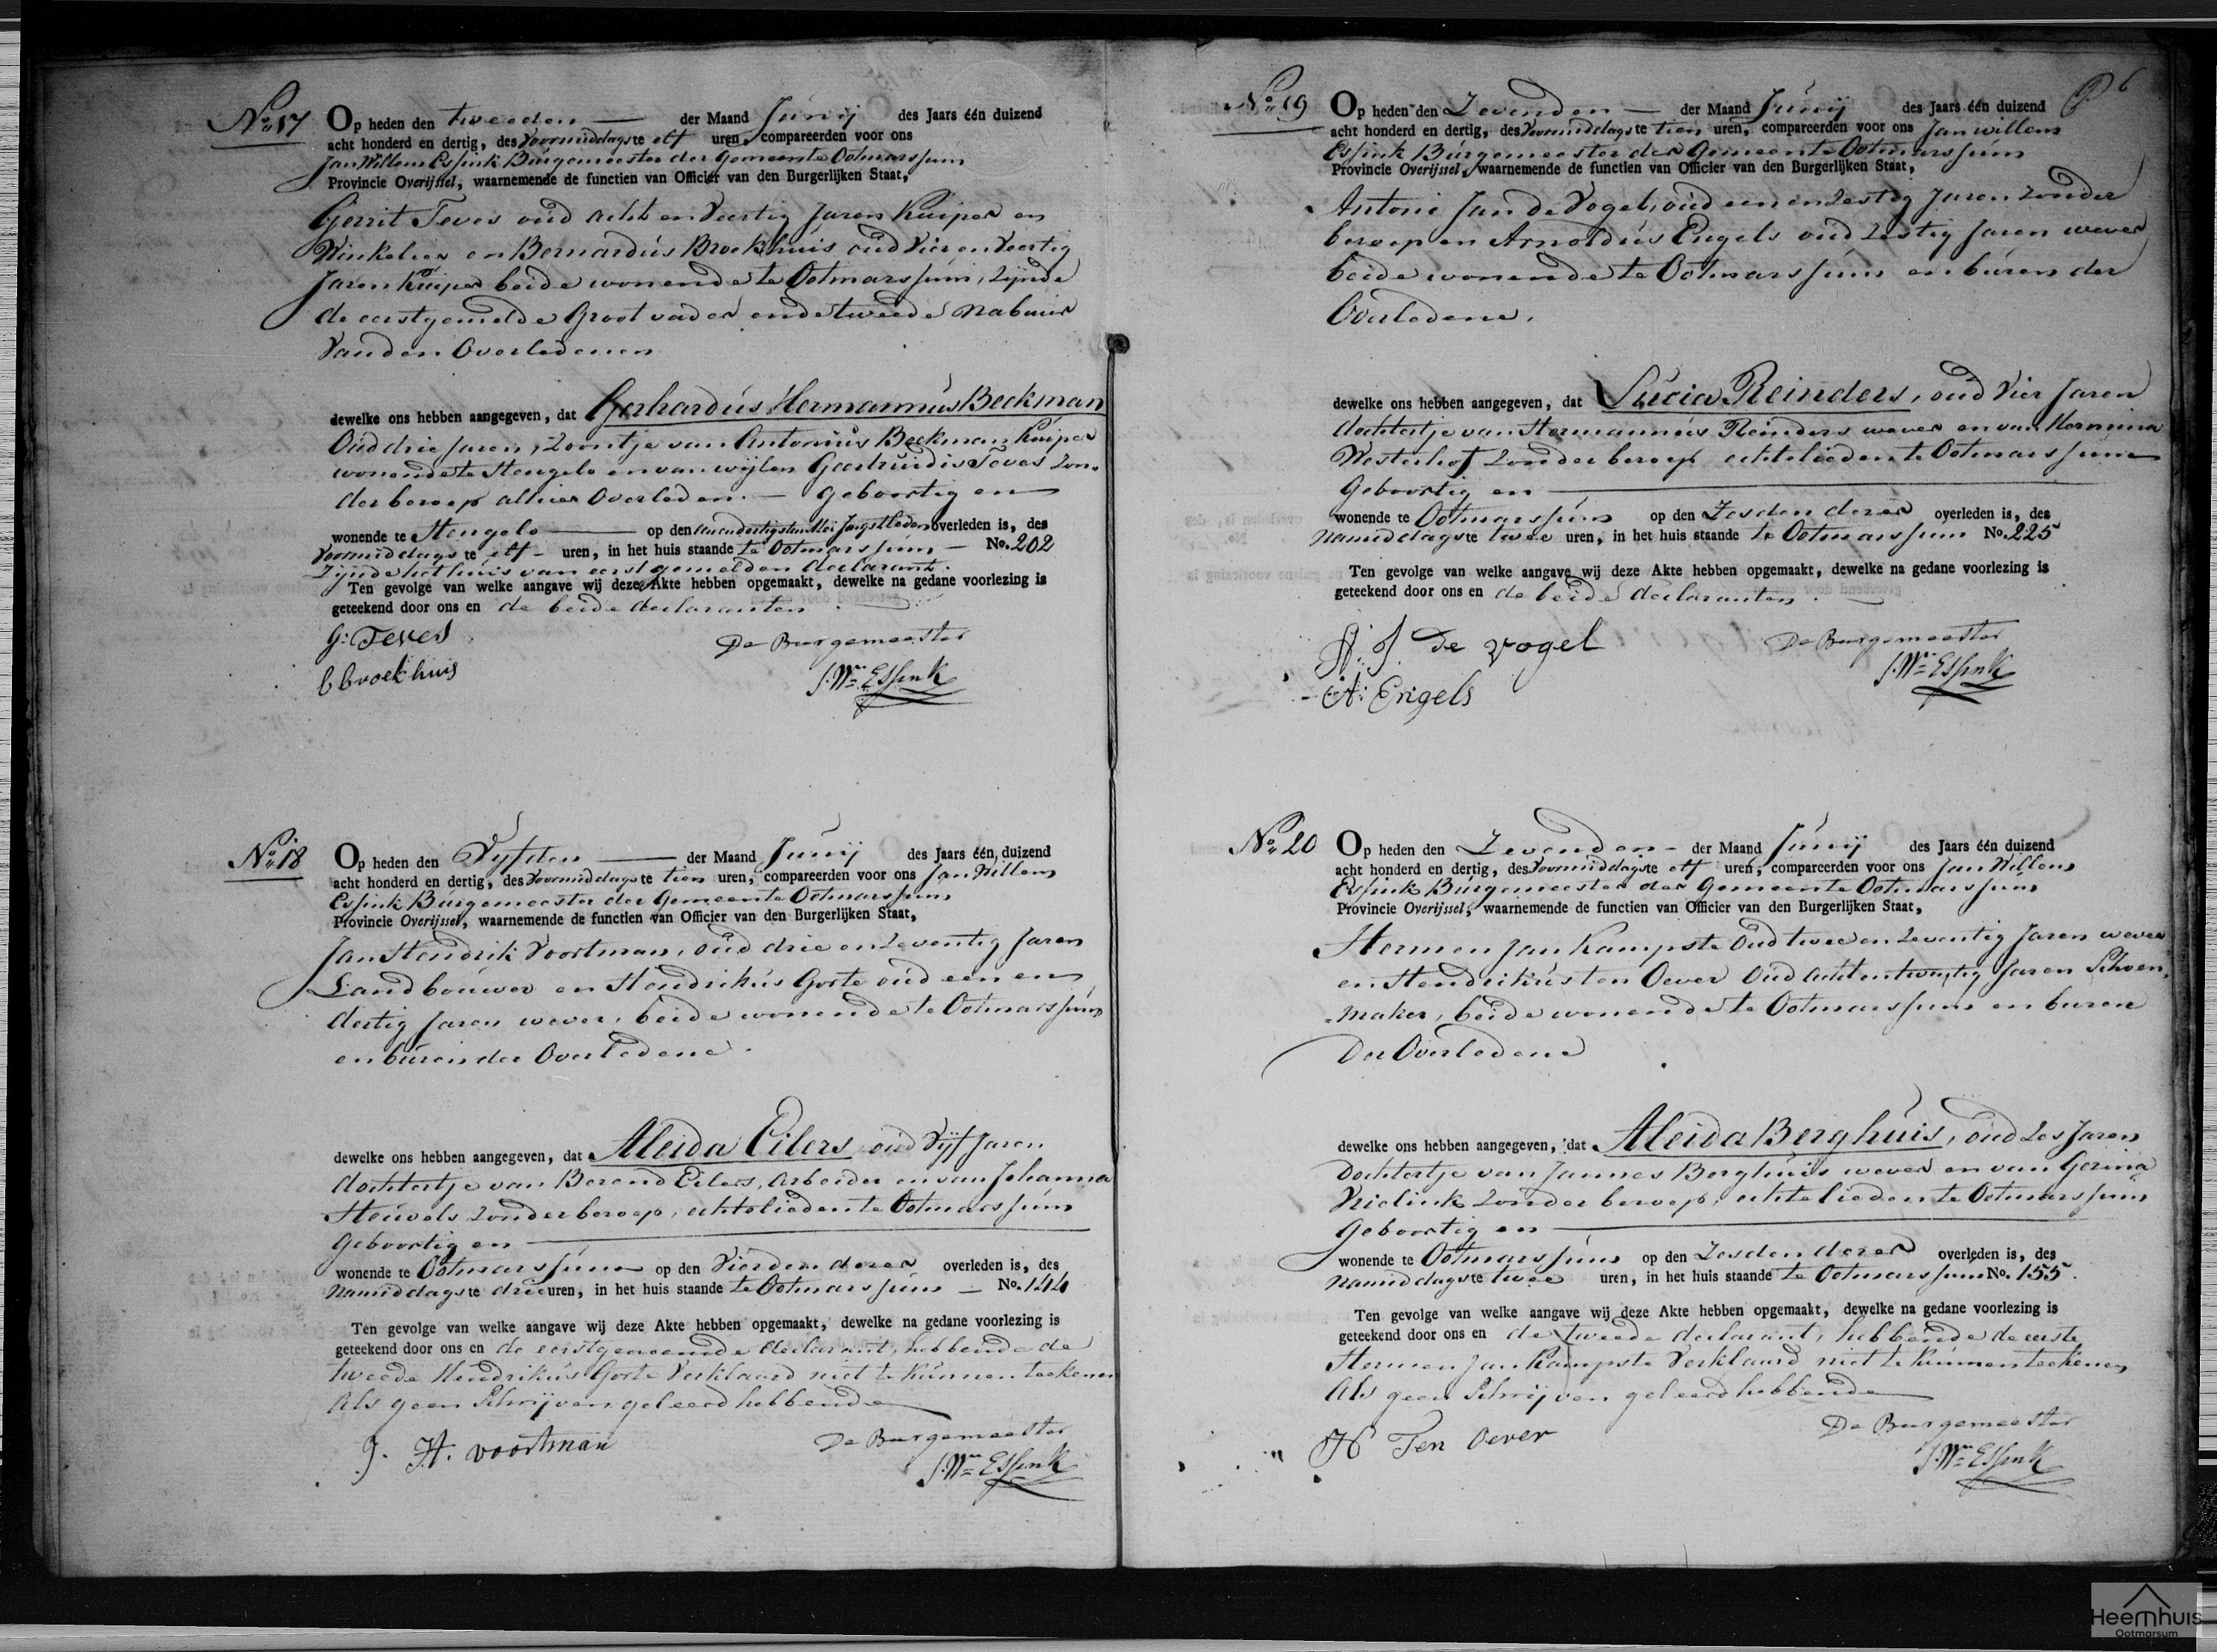 No. 17 Op heden den tweeden der Maand Junij des Jaars één duizend
acht honderd en dertig, des Voormiddags te elf uren, compareerden voor ons
Jan Willem Essink Burgemeester der Gemeente Ootmarssum
Provincie Overijssel, waarnemende de functien van Officier van den Burgerlijken Staat,
Gerrit Teves oud acht en Veertig Jaren Kuiper en
Winkelier en Bernardus Broekhuis oud Vier en Veertig
Jaren Kuiper beide wonende te Ootmarssum, zijnde
de eerstgemelde Grootvader en de tweede Nabuur
Van den Overledenen
dewelke ons hebben aangegeven, dat Gerhardus Hermannus Beckman
Oud drie Jaren, Zoontje van Antonius Beckman Kuiper
wonende te Hengelo en van wijlen Geertruidis Teves zon
der beroep alhier Overleden. — Geboortig en
wonende te Hengelo op den een en dertigsten Mei Jongstleden overleden is, des
Voormiddags te elf uren, in het huis staande te Ootmarssum No. 202
Zijnde het huis van eerstgemelden declarant.
Ten gevolge van welke aangave wij deze Akte hebben opgemaakt, dewelke na gedane voorlezing is
geteekend door ons en de beide declaranten.
G: Teves
De Burgemeester
B broekhuis
J. Wm Essink
No. 18 Op heden den Vyfden der Maand Junij des Jaars één duizend
acht honderd en dertig, des Voormiddags te tien uren, compareerden voor ons Jan Willem
Essink Burgemeester der Gemeente Ootmarssum
Provincie Overijssel, waarnemende de functien van Officier van den Burgerlijken Staat,
Jan Hendrik Voortman, oud drie en Zeventig Jaren
Landbouwer en Hendrikus Gorte oud een en
dertig Jaren wever, beide wonende te Ootmarssum
en buren der Overledene.
dewelke ons hebben aangegeven, dat Aleida Eilers, oud Vyf Jaren
dochtertje van Berend Eilers, Arbeider en van Johanna
Heuvels zonder beroep, echtelieden te Ootmarssum
Geboortig en
wonende te Ootmarssum op den Vierden dezer overleden is, des
Namiddags te drie uren, in het huis staande te Ootmarssum No. 144
Ten gevolge van welke aangave wij deze Akte hebben opgemaakt, dewelke na gedane voorlezing is
geteekend door ons en de eerstgenoemde declarant, hebbende de
tweede Hendrikus Gorte Verklaard niet te kunnen teekenen
Als geen Schrijven geleerd hebbende
J. H. voortman
De Burgemeester
J. Wm Essink
No. 19 Op heden den Zevenden der Maand Junij des Jaars één duizend
acht honderd en dertig, des Voormiddags te tien uren, compareerden voor ons Jan Willem
Essink Burgemeester der Gemeente Ootmarssum
Provincie Overijssel, waarnemende de functien van Officier van den Burgerlijken Staat,
Antonie Jan de Vogel, oud een en Zestig Jaren zonder
beroep en Arnoldus Engels oud Zestig Jaren wever
beide wonende te Ootmarssum en buren der
Overledene.
dewelke ons hebben aangegeven, dat Lucia Reinders, oud Vier Jaren
dochtertje van Hermannus Reinders wever en van Hermina
Westerhof zonder beroep echtelieden te Ootmarssum
Geboortig en
wonende te Ootmarssum op den Zesden dezer overleden is, des
Namiddags te twee uren, in het huis staande te Ootmarssum No. 225
Ten gevolge van welke aangave wij deze Akte hebben opgemaakt, dewelke na gedane voorlezing is
geteekend door ons en de beide declaranten.
A. J. De Vogel
De Burgemeester
J. Wm Essink
A: Engels
No. 20 Op heden den Zevenden der Maand Junij des Jaars één duizend
acht honderd en dertig, des Voormiddags te elf uren, compareerden voor ons Jan Willem
Essink Burgemeester der Gemeente Ootmarssum
Provincie Overijssel, waarnemende de functien van Officier van den Burgerlijken Staat,
Hermen Jan Kampste Oud twee en Zeventig Jaren wever
en Hendrikus ten Oever Oud acht en twintig Jaren Schoen,
maker, beide wonende te Ootmarssum en buren
Der Overledene
dewelke ons hebben aangegeven, dat Aleida Berghuis, oud Zes Jaren
Dochtertje van Jannes Berghuis wever en van Gerina
Nielink zonder beroep, echtelieden te Ootmarssum
Geboortig en
wonende te Ootmarssum op den Zesden dezer overleden is, des
Namiddags te twee uren, in het huis staande te Ootmarssum No. 155.
Ten gevolge van welke aangave wij deze Akte hebben opgemaakt, dewelke na gedane voorlezing is
geteekend door ons en de tweede declarant, hebbende de eerste
Hermen Jan Kampste Verklaard niet te kunnen teekenen
Als geen Schrijven geleerd hebbende
H Ten Oever
De Burgemeester
J. Wm Essink
Heemhuis
Ootmarsum